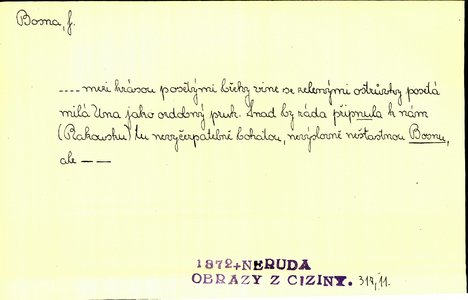 Bosna, f.
---- mezi krásou posetými břehy vine se zelenými ostrůvky posetá
milá Una jako ozdobný pruh. Snad by ráda připnula k nám
(Rakousku) tu nevyčerpatelně bohatou, nevýslovně nešťastnou Bosnu,
ale — —
1872+NERUDA
OBRAZY Z CIZINY. 318,11.